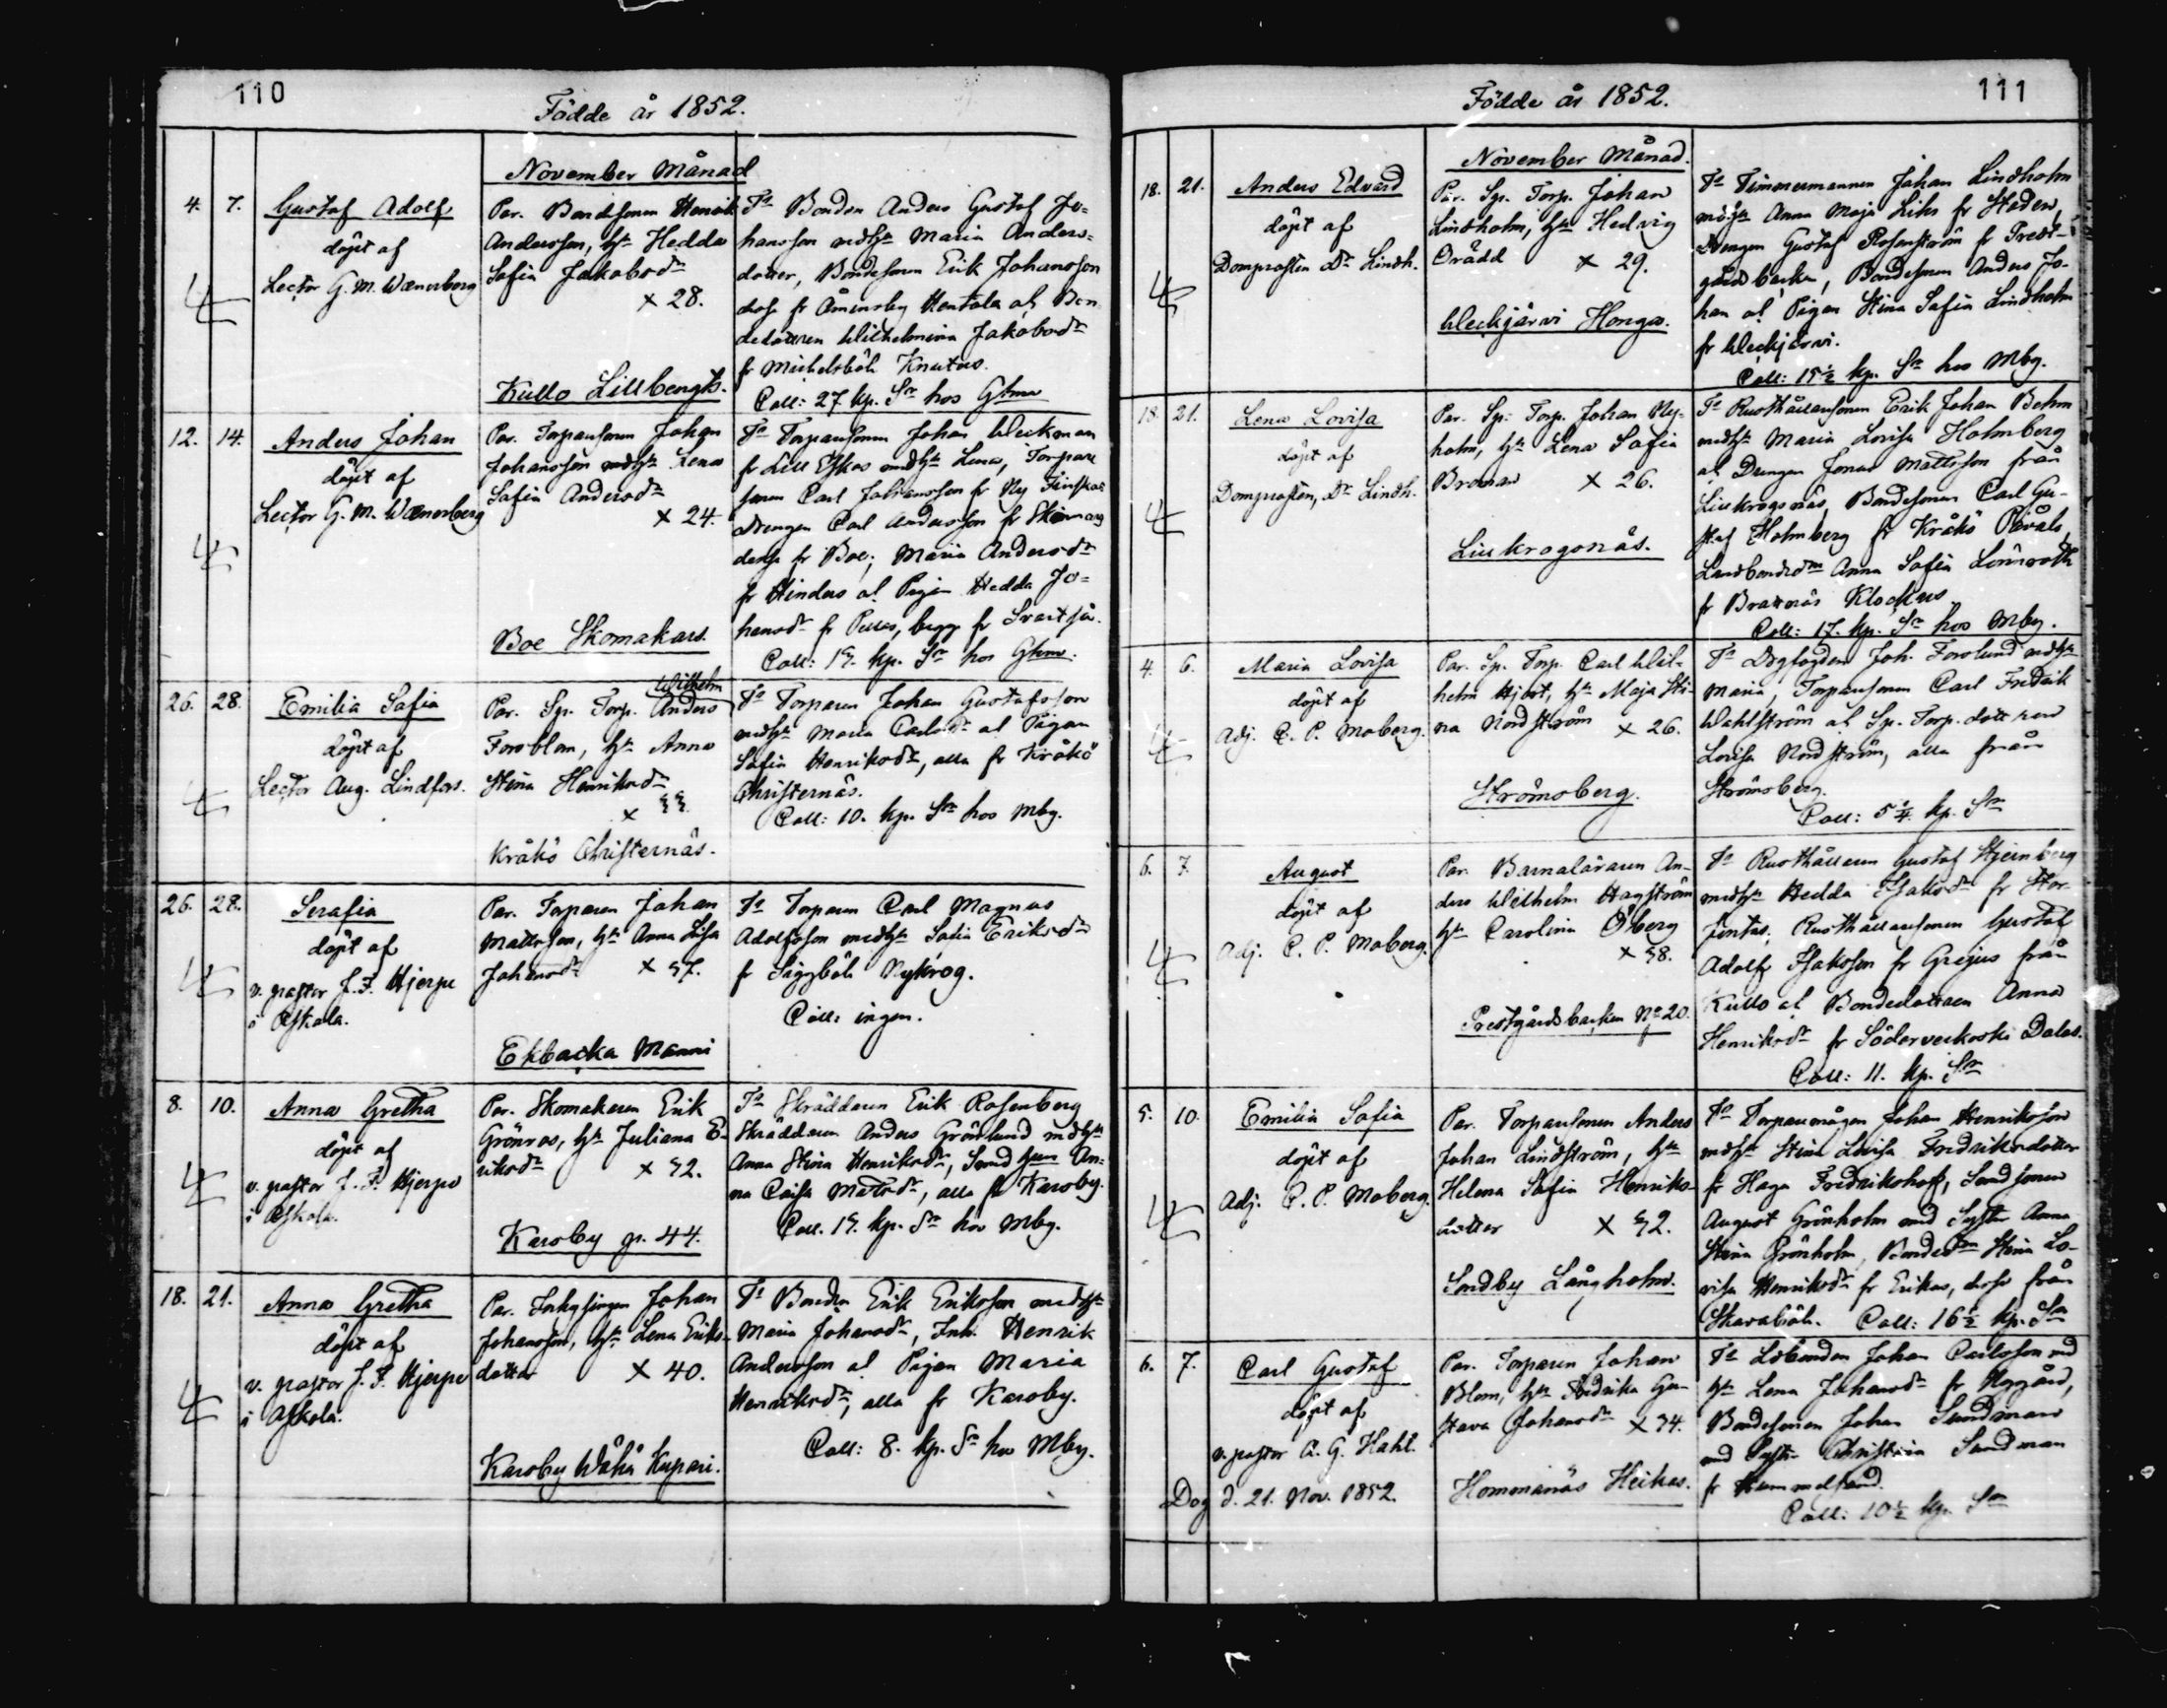 110
Födde år 1852.
November Månad
4. 7. Gustaf Adolf
döpt af
Lector G. M. Wænerberg
Par. Bondesonen Henrik
Andersson, h. Hedda
Sofia Jakobsdr
x 28.
Kullo Lillbengts.
Fd Bonden Anders Gustaf Jo=
hansson medh. Maria Anders=
dotter, Bondesonen Erik Johansson
dess fr Åminsby Hentala at Bon
dedottren Wilhelmina Jakobsdr
fr Michelsböle Knutas.
Coll: 27 kp. Sr hos Ghm
12. 14. Anders Johan
döpt af
Lector G. M. Wænerberg
Par. Torparsonen Johan
Johansson medh. Lena
Sofia Andersdr
x 24.
Boe Skomakars.
Fd Torparsonen Johan Weckman
fr Lill Eskas medh. Lena, Torpare
sonen Carl Johansson fr Ny
Drengen Carl Andersson fr
fr Boe; Maria Andersdr
fr Hinders at Pigan Hedda Jo=
hansdr fr Pelles, begge fr Svartså.
Coll: 15. kp. Sr hos Ghm.
26. 28. Emilia Sofia
döpt af
Lector Aug. Lindfors.
Wilhelm
Par. Sp. Torp. Anders
Forsblom, h. Anna
Stina Henriksdr
x 33.
Kråkö Christernäs.
Fd Torparen Johan Gustafsson
medh. Maria Carlsdr at Pigan
Sofia Henriksdr, alla fr Kråkö
Christernäs.
Coll: 10. kp. Sr hos Mbg.
26. 28. Serafia
döpt af
v. pastor J. F. Hjerpe
i Askola.
Par. Torparen Johan
Mattsson, h. Anna Lisa
Johansdr x 37.
Ekbacka Manni
Fd Torparen Carl Magnus
Adolfsson medh. Sofia Eriksdr
fr Siggböle Nykrog.
Coll: ingen.
8. 10. Anna Gretha
döpt af
v. pastor J. F. Hjerpe
i Askola.
Par. Skomakaren Erik
Grönros, h. Juliana E-
riksdr x 32.
Karsby p. 44.
Fd Skräddaren Erik Rosenberg
Skräddaren Anders Grönlund medh.
Anna Stina Henriksdr, An-
na Caisa Mattsdr, alla fr Karsby.
Coll. 15. kp. Sr hos Mbg.
18. 21. Anna Gretha
döpt af
v. pastor J. F. Hjerpe
i Askola.
Par. Inhysingen Johan
Johansson, h. Lena Eriks-
dotter x 40.
Karsby Wähä Kupari.
Fd Bonden Erik Eriksson medh.
Maria Johansdr, Inh. Henrik
Andersson at Pigan Maria
Henriksdr, alla fr Karsby.
Coll: 8. kp. Sr hos Mbg.
111
Födde år 1852.
November Månad.
18. 21. Anders Edvard
döpt af
Domprosten Dr Lindh.
Par. Sp. Torp. Johan
Lindholm, h. Hedvig
Orädd x 29.
Weckjärvi Honga.
Fd Timmermannen Johan Lindholm
medh. Anna Maja Liks fr Staden,
Drengen Gustaf Rosenström fr Prest-
gårdsbacka, Bondesonen Anders Jo-
han at Pigan Stina Sofia Lindholm
fr Weckjärvi.
Coll: 15½ kp. Sr hos Mbg.
18. 21. Lena Lovisa
döpt af
Domprosten, Dr Lindh.
Par. Sp. Torp. Johan Ny-
holm, h. Lena Sofia
Broman x 26.
Lillkrogsnäs.
Fd Rusthållarsonen Erik Johan Behm
medh. Maria Lovisa Holmberg
at Drengen Jonas Mattsson från
Lillkrogsnäs, Bondesonen Carl Gu-
staf Holmberg fr Kråkö Påvals,
Landbondedr Anna Sofia Lönnroth
fr Brattnäs Klockus
Coll: 17. kp. Sr hos Mbg.
4. 6. Maria Lovisa
döpt af
Adj. C. P. Moberg.
Par. Sp. Torp. Carl Wil-
helm Hjort, h. Maja Sti-
na Nordström x 26.
Strömsberg.
Fd Joh. Forslund medh.
Maria, Torparsonen Carl Fredrik
Wahlström at Sp. Torp. dottren
Lovisa Nordström, alla från
Strömsberg.
Coll: 5¼ kp. Sr
6. 7. August
döpt af
Adj. C. P. Moberg.
Par. Barnaläraren An-
ders Wilhelm Hagström
h. Carolina Öberg
x 38.
Prestgårdsbacken No 20.
Fd Rusthållaren Gustaf Stjernberg
medh. Hedda Isaksdr fr Stor-
jentas, Rusthållarsonen Gustaf
Adolf Isaksson fr Grejus från
Kullo at Bondedottren Anna
Henriksdr fr Söderveckoski Dalas.
Coll: 11. kp. Sr
5. 10. Emilia Sofia
döpt af
Adj. C. P. Moberg.
Par. Torparsonen Anders
Johan Lindström, h.
Helena Sofia Henriks-
dotter x 32.
Sondby Långholm.
Fd Torparmågen Johan Henriksson
medh. Stina Lovisa Fredriksdotter
fr Haga Fredrikshof,
August Grönholm med Syster Anna
Stina Grönholm, Bondedr Stina Lo-
visa Henriksdr fr Erikas, dess från
Skavaböle. Coll: 16½ kp. Sr
6. 7. Carl Gustaf
döpt af
v. pastor A. G. Hahl.
Dog d. 21. Nov. 1852.
Par. Torparen Johan
Blom, h. Fredrika Gu-
stava Johansdr x 34.
Hommanäs Heikas.
Fd Ldbonden Johan Carlsson med
h. Lena Johansdr fr Nygård,
Bondesonen Johan Sundman
med Syster Christina Sundman
fr Hummelsund.
Coll: 10½ kp. Sr